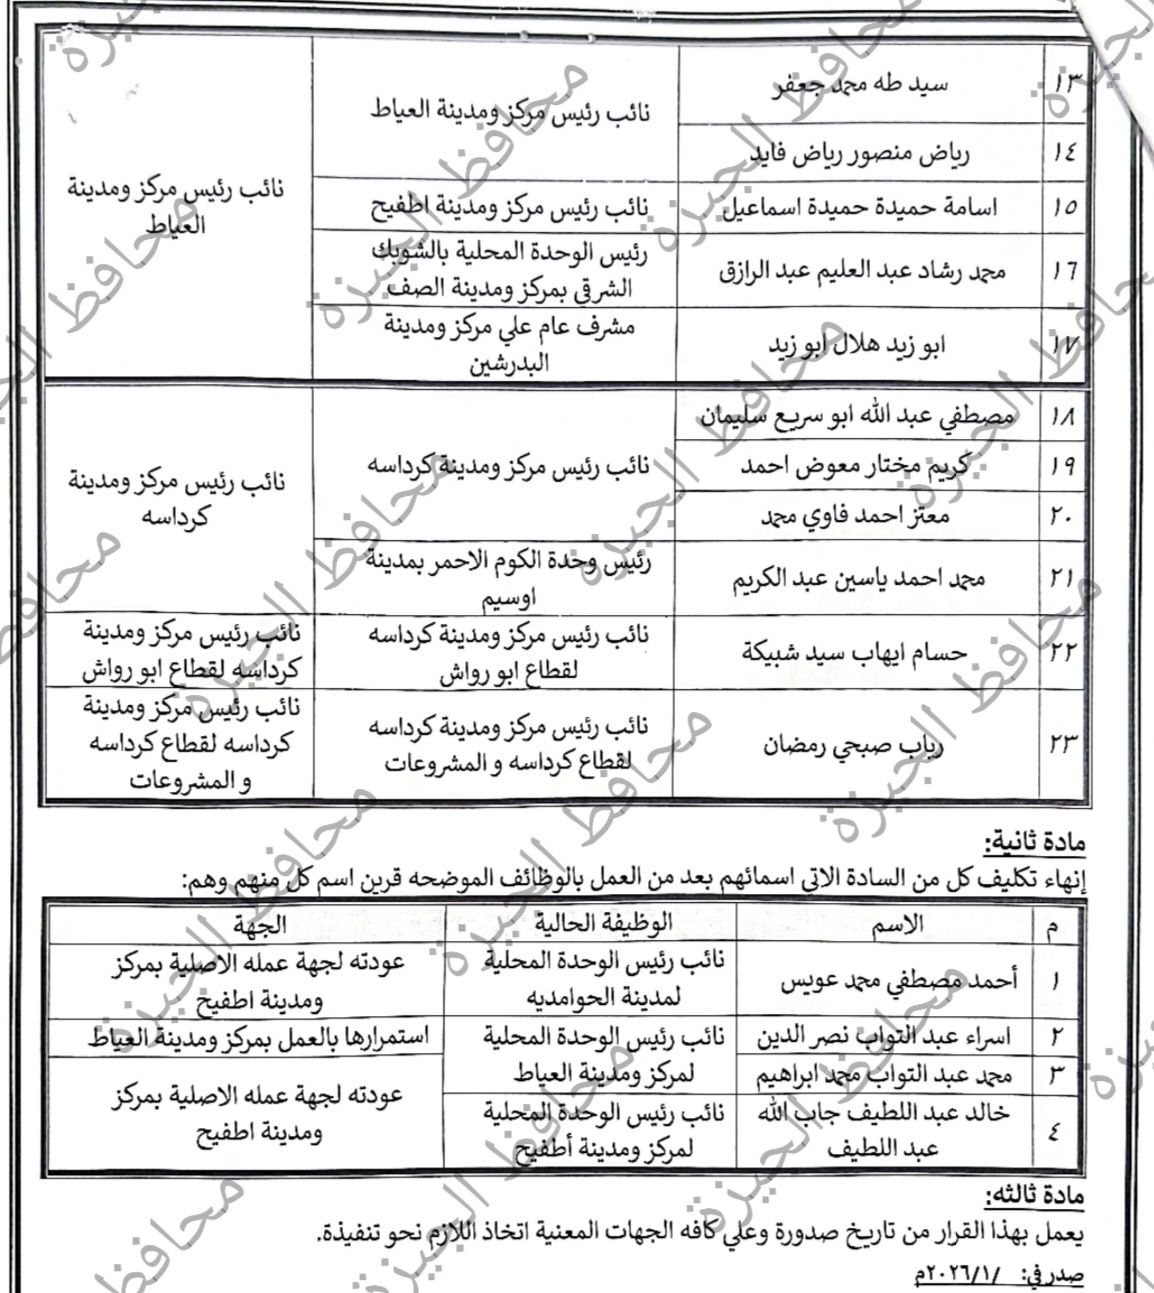 ١٣ سيد طه محمد جعفر
نائب رئيس مركز ومدينة العياط
نائب رئيس مركز ومدينة
العياط
١٤ رياض منصور رياض فايد
١٥ اسامة حميدة حميدة اسماعيل نائب رئيس مركز ومدينة اطفيح
١٦ محمد رشاد عبد العليم عبد الرازق
رئيس الوحدة المحلية بالشوبك
الشرقي بمركز ومدينة الصف
١٧ ابو زيد هلال ابو زيد
مشرف عام علي مركز ومدينة
البدرشين
١٨ مصطفي عبد الله ابو سريع سليمان
١٩ كريم مختار معوض احمد
نائب رئيس مركز ومدينة كرداسه
نائب رئيس مركز ومدينة
كرداسه
٢٠ معتز احمد فاوي محمد
٢١ محمد احمد ياسين عبد الكريم
رئيس وحدة الكوم الاحمر بمدينة
اوسيم
٢٢ حسام ايهاب سيد شبيكة
نائب رئيس مركز ومدينة كرداسه
لقطاع ابو رواش
نائب رئيس مركز ومدينة
كرداسه لقطاع ابو رواش
٢٣ رباب صبحي رمضان
نائب رئيس مركز ومدينة كرداسه
لقطاع كرداسه و المشروعات
نائب رئيس مركز ومدينة
كرداسه لقطاع كرداسه
و المشروعات
مادة ثانية:
إنهاء تكليف كل من السادة الاتي اسمائهم بعد من العمل بالوظائف الموضحه قرين اسم كل منهم وهم:
م الاسم الوظيفة الحالية الجهة
١ أحمد مصطفي محمد عويس
نائب رئيس الوحدة المحلية
لمدينة الحوامديه
عودته لجهة عمله الاصلية بمركز
ومدينة اطفيح
٢ اسراء عبد التواب نصر الدين
نائب رئيس الوحدة المحلية
لمركز ومدينة العياط
استمرارها بالعمل بمركز ومدينة العياط
٣ محمد عبد التواب محمد ابراهيم
عودته لجهة عمله الاصلية بمركز
ومدينة اطفيح
٤ خالد عبد اللطيف جاب الله
عبد اللطيف
نائب رئيس الوحدة المحلية
لمركز ومدينة أطفيح
مادة ثالثه:
يعمل بهذا القرار من تاريخ صدورة وعلي كافه الجهات المعنية اتخاذ اللازم نحو تنفيذة.
صدر في: /٢٠٢٦/١م
محافظ الجيزة